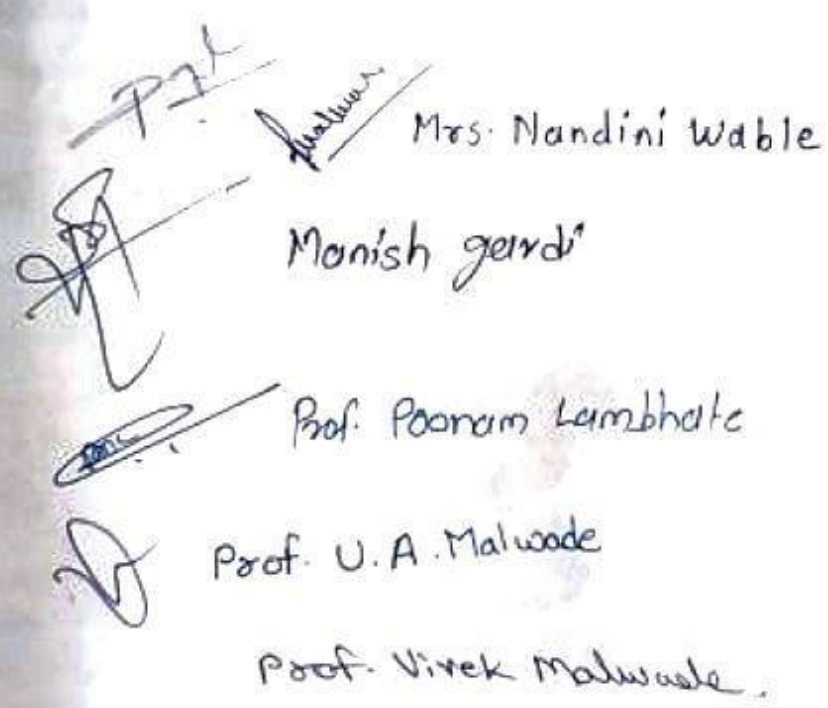 Mrs. Nandini Wable
Manish gardi
Prof. Poonam Lambhate
Prof. U.A. Malwade
Prof. Vivek Malwade.